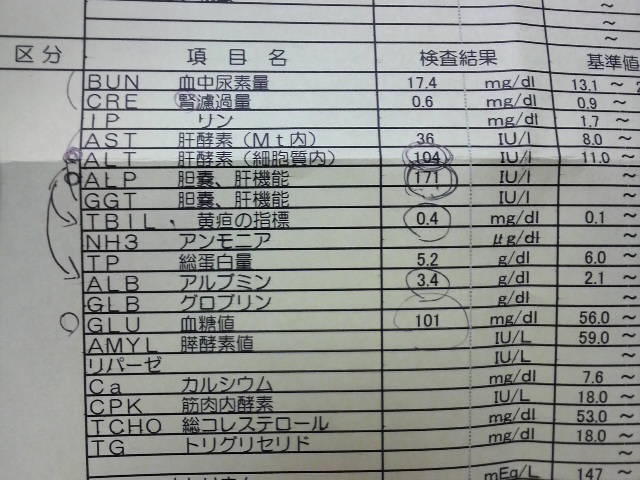 ~
~
~
区分 項目名 検査結果 基準値
BUN 血中尿素量 17.4 mg/dl 13.1 ~ 2
CRE 腎濾過量 0.6 mg/dl 0.9 ~
IP リン mg/dl 1.7 ~
AST 肝酵素(Mt内) 36 IU/l 8.0 ~
ALT 肝酵素(細胞質内) 104 IU/l 11.0 ~
ALP 胆嚢、肝機能 171 IU/l ~
GGT 胆嚢、肝機能 IU/l ~
TBIL・ 黄疸の指標 0.4 mg/dl 0.1 ~
NH3 アンモニア μg/dl ~
TP 総蛋白量 5.2 g/dl 6.0 ~
ALB アルブミン 3.4 g/dl 2.1 ~
GLB グロブリン g/dl ~
GLU 血糖値 101 mg/dl 56.0 ~
AMYL 膵酵素値 IU/L 59.0 ~
リパーゼ IU/L ~
Ca カルシウム mg/dl 7.6 ~
CPK 筋肉内酵素 IU/L 18.0 ~
TCHO 総コレステロール mg/dl 53.0 ~
TG トリグリセリド mg/dl 18.0 ~
~
mEq/L 147 ~